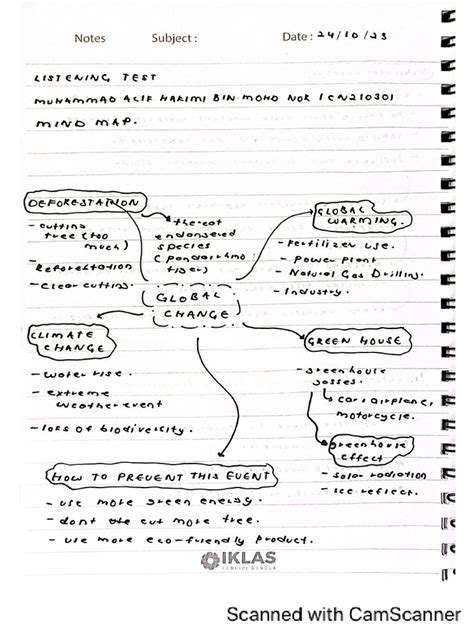 Notes Subject : Date : 24/10/23
LISTENING TEST
MUHAMMAD ALIF HAKIMI BIN MOHD NOR / CN210301
MIND MAP.
DEFORESTATION
- cutting
tree (too
much)
- Reforestation
- Clear cutting.
endangered
species
tiger)
GLOBAL
WARMING.
- Fertilizer use.
- Power plant
- Natural Gas Drilling.
- Industry.
GLOBAL
CHANGE
CLIMATE
CHANGE
- water rise.
- extreme
weather event
- loss of biodiversity.
GREEN HOUSE
- greenhouse
gosses.
car, airplane,
motorcycle.
greenhouse
effect
- solar radiation
- ice reflect.
HOW TO PREVENT THIS EVENT
- use more green energy.
- dont the cut more tree.
- use more eco-friendly product.
IKLAS
Scanned with CamScanner